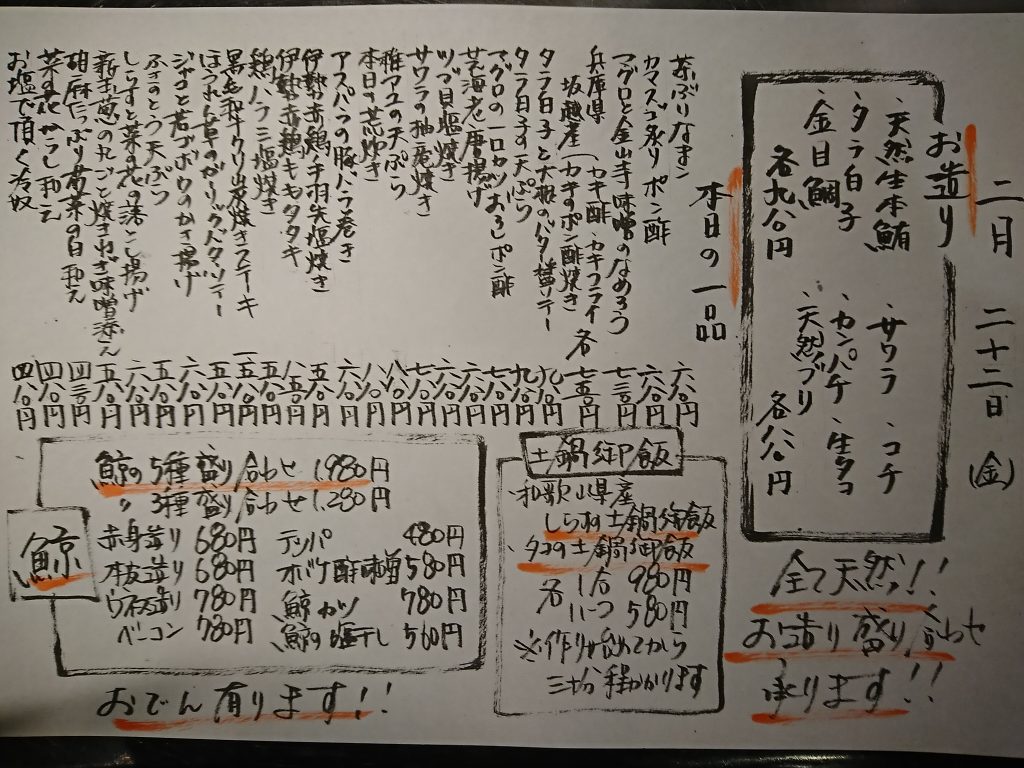 二月 二十二日 (金)
お造り
・天然生本鮪
・タラ白子
・金目鯛
各九八〇円
・サワラ ・コチ
・カンパチ ・生タコ
・天然ブリ
各八八〇円
全て天然!!
お造り盛り合わせ
承ります!!
本日の一品
カマスゴ炙り ポン酢 六八〇円
マグロと金山寺味噌のなめろう
兵庫県
坂越産(カキ酢・カキフライ
カキのポン酢焼き 各
タラ白子と大根のバター醤油ソテー
タラ白子の天ぷら
マグロの一口カツ おろしポン酢
芝海老唐揚げ
ツブ貝塩焼き
サワラの柚庵焼き
稚アユの天ぷら
本日の荒炊き
アスパラの豚バラ巻き
伊勢赤鶏手羽先塩焼き
伊勢赤鶏キモタタキ
鶏ハラミ塩焼き
黒毛和牛クリ炭焼きステーキ
ほうれん草のガーリックバターソテー
ジャコと若ゴボウのかき揚げ
ふきのとう天ぷら
しらすと菜の花の落とし揚げ
新玉葱の丸ごと焼き ねぎ味噌添え
胡麻たっぷり 菊菜の白和え
菜の花からし和え
お塩で頂く冷奴 四八〇円
土鍋御飯
・和歌山県産
しらす土鍋御飯
・タコの土鍋御飯
各 1合 980円
ハーフ 580円
※作り始めてから
三十分程かかります
鯨
鯨の5種盛り合わせ 1.980円
〃 3種盛り合わせ 1.280円
赤身造り 680円 テッパ 480円
本皮造り 680円 オバケ酢味噌 580円
ウネス造り 780円 鯨カツ 780円
ベーコン 780円 鯨の塩干し 560円
おでん有ります!!